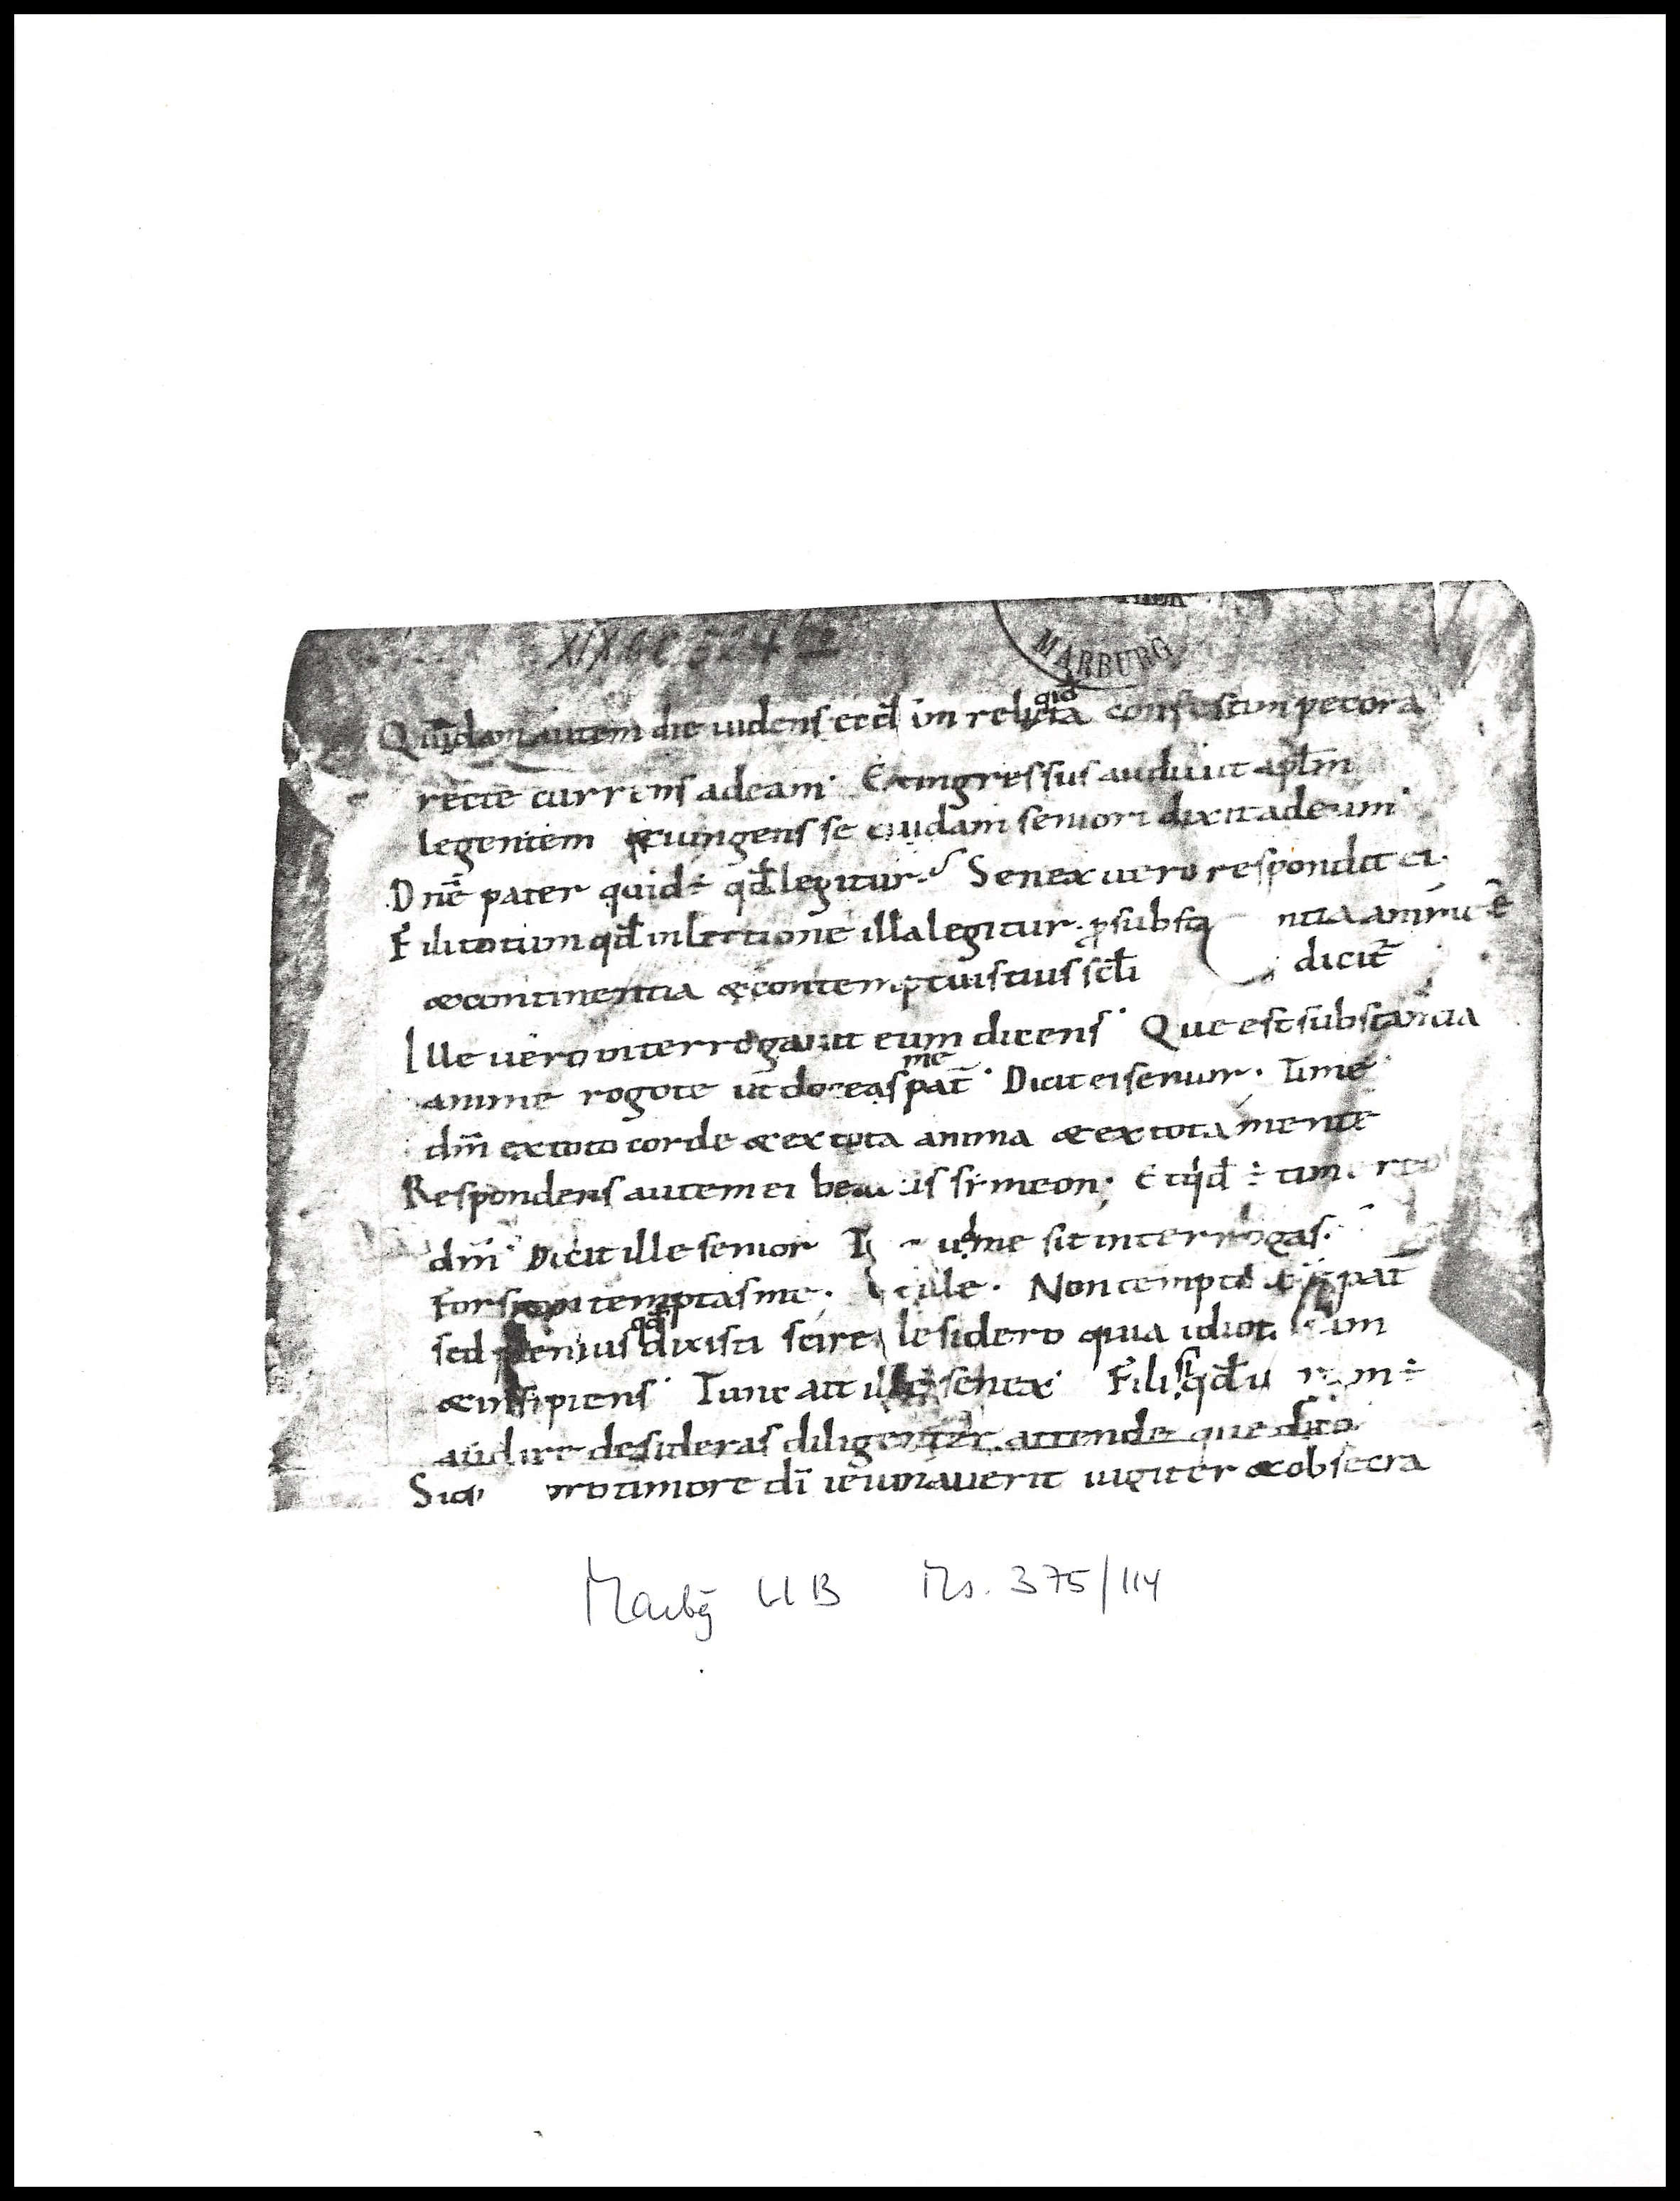 XIX
MARBURG
Quadam autem die uidens eccl im relicta confestim pecora
recte currens ad eam · Et ingressus audiuit aplm
legentem &iungens se cuidam seniori dixit ad eum ·
Dne pater quid ÷ qd legitur · Senex uero respondit ei ·
Fili totum qd in lectione illa legitur · p substa ntia anime ē
&continentia &contemptu istius scli dicit
Ille uero interrogauit eum dicens · Que est substantia
me
anime rogo te ut doceas pat · Dicit ei senior · Time
dm ex toto corde &ex tota anima &ex tota mente
Respondens autem ei symeon · Et qd ÷
dm · Dicit ille senior me sit interrogas ·
temptas me · ille · Non tempto pat
qd
sed plenius dixisti scire desidero quia idiota
&insipiens · Tunc ait ille senex · Fili qd
audire desideras diligenter attende que dico
timore di ieiunauerit iugiter &obsecra
Marbg UB Ms. 375/114